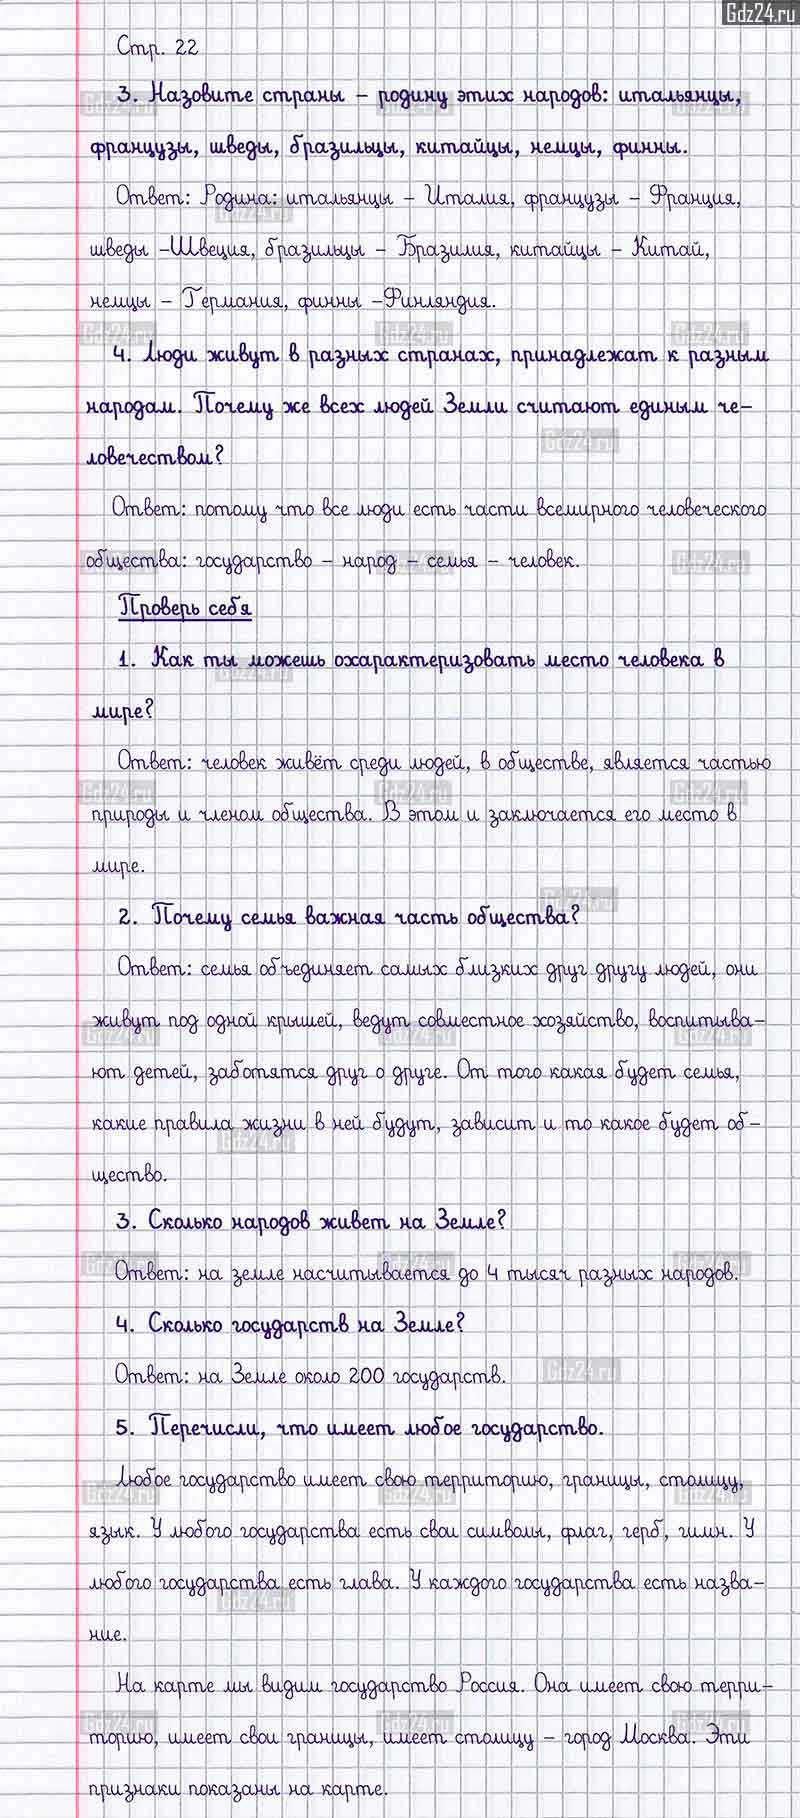 Gdz24.ru
Стр. 22
3. Назовите страны – родину этих народов: итальянцы,
французы, шведы, бразильцы, китайцы, немцы, финны.
Ответ: Родина: итальянцы – Италия, французы – Франция,
шведы –Швеция, бразильцы – Бразилия, китайцы – Китай,
немцы – Германия, финны –Финляндия.
4. Люди живут в разных странах, принадлежат к разным
народам. Почему же всех людей Земли считают единым че-
ловечеством?
Ответ: потому что все люди есть части всемирного человеческого
общества: государство – народ – семья – человек.
Проверь себя
1. Как ты можешь охарактеризовать место человека в
мире?
Ответ: человек живёт среди людей, в обществе, является частью
природы и членом общества. В этом и заключается его место в
мире.
2. Почему семья важная часть общества?
Ответ: семья объединяет самых близких друг другу людей, они
живут под одной крышей, ведут совместное хозяйство, воспитыва-
ют детей, заботятся друг о друге. От того какая будет семья,
какие правила жизни в ней будут, зависит и то какое будет об-
щество.
3. Сколько народов живет на Земле?
Ответ: на земле насчитывается до 4 тысяч разных народов.
4. Сколько государств на Земле?
Ответ: на Земле около 200 государств.
5. Перечисли, что имеет любое государство.
Любое государство имеет свою территорию, границы, столицу,
язык. У любого государства есть свои символы, флаг, герб, гимн. У
любого государства есть глава. У каждого государства есть назва-
ние.
На карте мы видим государство Россия. Она имеет свою терри-
торию, имеет свои границы, имеет столицу – город Москва. Эти
признаки показаны на карте.